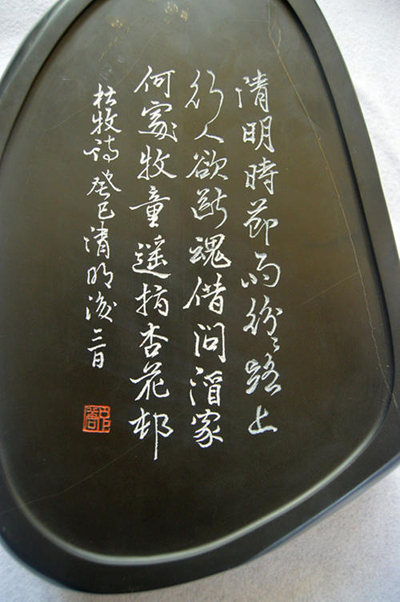 清明時節雨紛々路上
行人欲斷魂借問酒家
何處牧童遥指杏花邨
杜牧詩 癸巳清明後二日